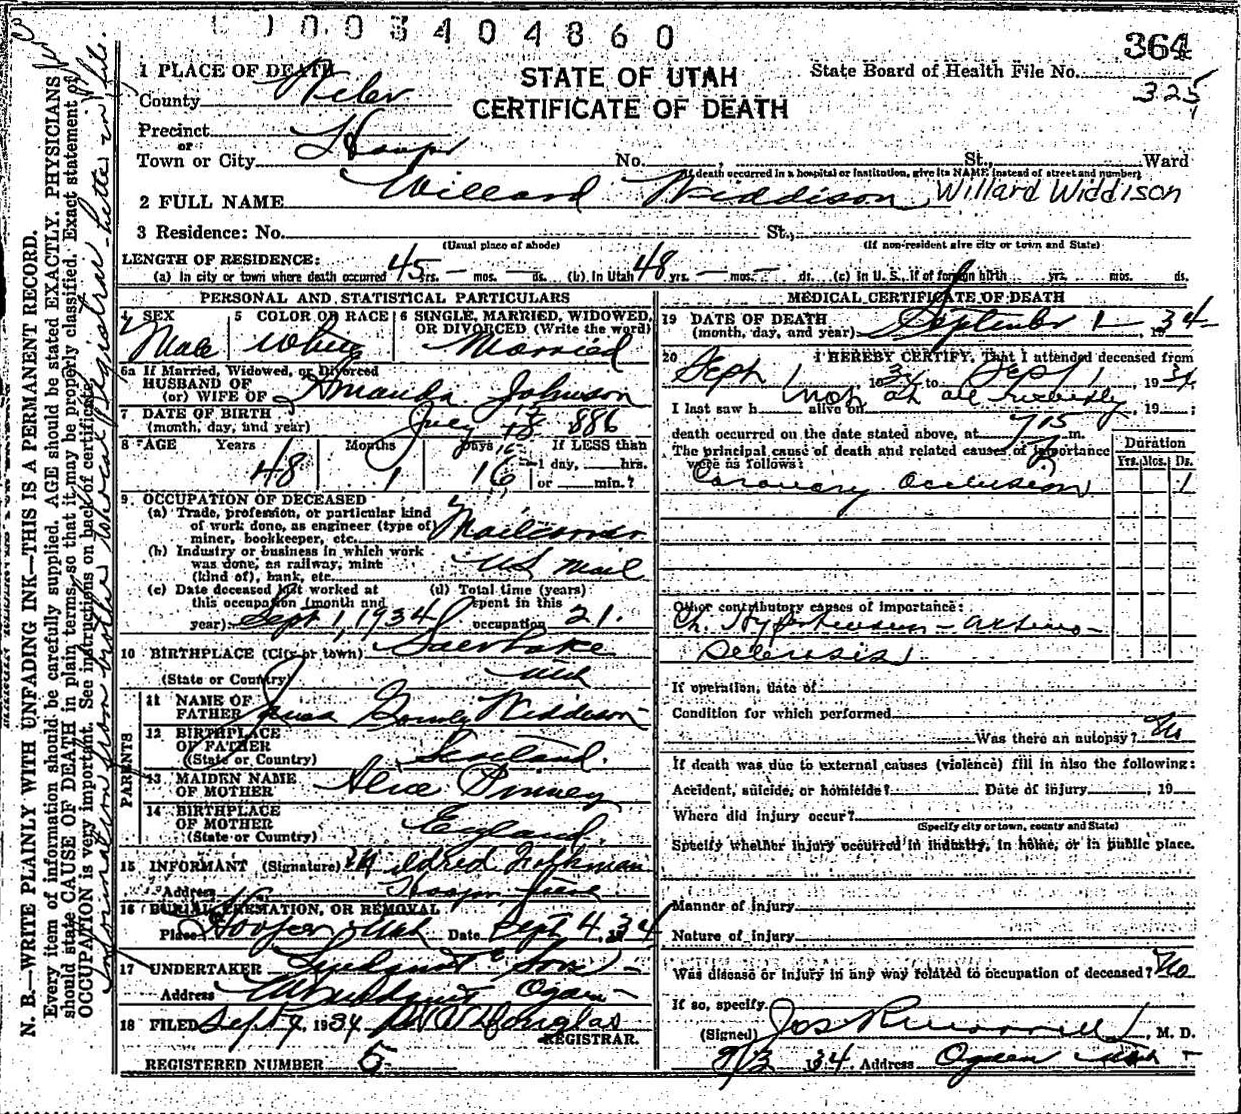 1003404860
364
STATE OF UTAH
CERTIFICATE OF DEATH
State Board of Health File No.
325
1 PLACE OF DEATH
County Weber
Precinct
or
Town or City Hooper No. , St., Ward
(If death occurred in a hospital or institution, give its NAME instead of street and number)
2 FULL NAME Willard Widdison Willard Widdison
3 Residence: No. St.,
(Usual place of abode) (If non-resident give city or town and State)
LENGTH OF RESIDENCE:
(a) In city or town where death occurred 45 yrs. — mos. — ds. (b) In Utah 48 yrs. — mos. — ds. (c) in U. S. if of foreign birth yrs. mos. ds.
PERSONAL AND STATISTICAL PARTICULARS
4 SEX 5 COLOR OR RACE 6 SINGLE, MARRIED, WIDOWED,
OR DIVORCED (Write the word)
Male White Married
6a If Married, Widowed, or Divorced
HUSBAND OF
(or) WIFE OF Amanda Johnson
7 DATE OF BIRTH
(month, day, and year) July 18 1886
8 AGE Years Months Days If LESS than
1 day, hrs.
48 1 16 or min.?
9 OCCUPATION OF DECEASED
(a) Trade, profession, or particular kind
of work done, as engineer (type of)
miner, bookkeeper, etc. Mailcarrier
(b) Industry or business in which work
was done, as railway, mint
(kind of), bank, etc. US Mail
(c) Date deceased last worked at (d) Total time (years)
this occupation (month and spent in this
year): Sept 1, 1934 occupation 21.
10 BIRTHPLACE (City or town) Salt Lake
(State or Country) Utah
PARENTS
11 NAME OF
FATHER James Widdison
12 BIRTHPLACE
OF FATHER
(State or Country)
13 MAIDEN NAME
OF MOTHER Alice Pinney
14 BIRTHPLACE
OF MOTHER
(State or Country) England
15 INFORMANT (Signature) Mildred
Address Hooper
16 BURIAL, CREMATION, OR REMOVAL
Place Hooper Utah Date Sept 4, 1934
17 UNDERTAKER Lindquist & Sons
Address Ogden
18 FILED Sept 9, 1934 Douglas
REGISTRAR.
REGISTERED NUMBER 5
MEDICAL CERTIFICATE OF DEATH
19 DATE OF DEATH
(month, day, and year) September 1 — 1934
20 I HEREBY CERTIFY, That I attended deceased from
Sept 1, 1934 to Sept 1, 1934
not at all recently
I last saw h alive on , 19 ;
death occurred on the date stated above, at 715 m.
The principal cause of death and related causes of importance
were as follows:
Duration
Yrs. Mos. Ds.
Coronary Occlusion 1
Other contributory causes of importance:
Ch. Hypertension — arterio-
sclerosis
If operation, date of
Condition for which performed
Was there an autopsy? No
If death was due to external causes (violence) fill in also the following:
Accident, suicide, or homicide? Date of injury , 19
Where did injury occur?
(Specify city or town, county and State)
Specify whether injury occurred in industry, in home, or in public place.
Manner of injury
Nature of injury
Was disease or injury in any way related to occupation of deceased? No
If so, specify
(Signed) Jos R Morrell, M. D.
9/3 1934 Address Ogden Utah
N. B.—WRITE PLAINLY WITH UNFADING INK—THIS IS A PERMANENT RECORD.
Every item of information should be carefully supplied. AGE should be stated EXACTLY. PHYSICIANS
should state CAUSE OF DEATH in plain terms, so that it may be properly classified. Exact statement of
OCCUPATION is very important. See instructions on back of certificate.
Information from brother & local registrar - letter in file.